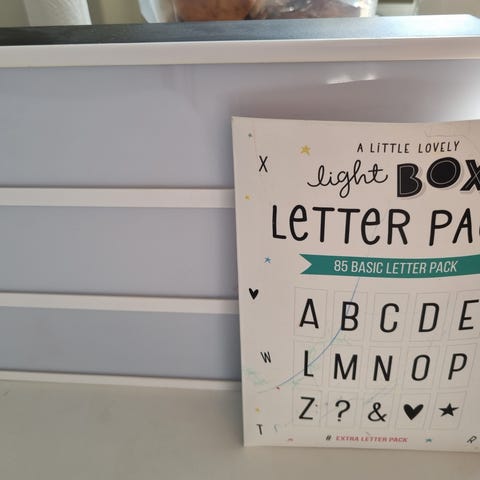 A LITTLE LOVELY
X
light BOX
LETTER PA
85 BASIC LETTER PACK
A B C D E
L M N O P
W
Z ? & ♥ ★
T
# EXTRA LETTER PACK